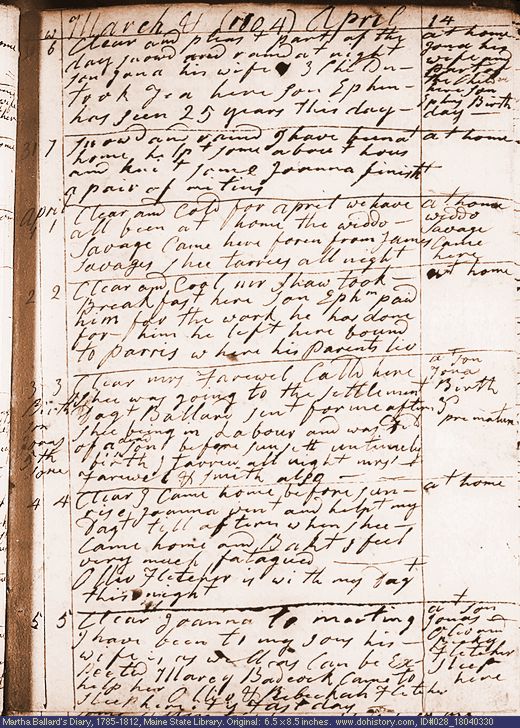 March & (1804) April 14
6 Clear and pleast part of the at home
day snowd and raind at night Jona his
son Jona his wife & 3 Childn wife and
took Tea here son Ephm here son
has seen 25 years this day Ephms Birth
day
31 7 Snowd and raind I have been at at home
home helpt some about hous
and knit some Joanna finisht
a pair of mitins
April
1 1 Clear and Cold for april we have at home
all been at home the widdo widdo
Savage Came here foren from James Savage
Savages shee tarries all night Came
here
2 2 Clear and Cool mr Shaw took at home
Breakfast here son Ephm paid
him for the work he has done
for him he left here bound
to parris where his Parents liv
3 3 Clear mrs Farewel Calld here at son
shee was going to the settlement Jona
Birth Dagt Ballard sent for me aftern Birth
son shee being in Labour and was
Jonas of a son before sunsett untimely premature
5th birth I tarred all night mrs
Farewell & Smith also
4 4 Clear I Came home before sun- at home
rise Joanna went and helpt my
Dagt till aftern when shee
Came home and Bakt I feel
very much fatagued
Olliv Fletcher is with my Dagt
this night
5 5 Clear Joanna to meeting at son
I have been to my sons his Jonas
wife is as well as Can be Ex- Oliv and
pected Marcy Babcock Came to Fletcher
help her Olliv & Rebeckah Fletcher sleep
here
fast day
Martha Ballard's Diary, 1785-1812, Maine State Library. Original: 6.5 x 8.5 inches. www.dohistory.org, ID#028_18040330